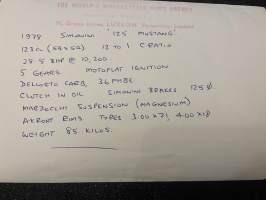 1978 SIMONINI '125 MUSTANG'
123cc (54x54) 12 TO 1 C.RATIO
28.5 BHP @ 10,200.
5 GEARS MOTOPLAT IGNITION
DELLORTO CARB, 36 PHBE
CLUTCH IN OIL SIMONINI BRAKES 125 Ø
MARZOCCHI SUSPENSION (MAGNESIUM)
AKRONT RIMS TYRES 3.00 x 21, 4.00 x 18
WEIGHT 85 KILOS.